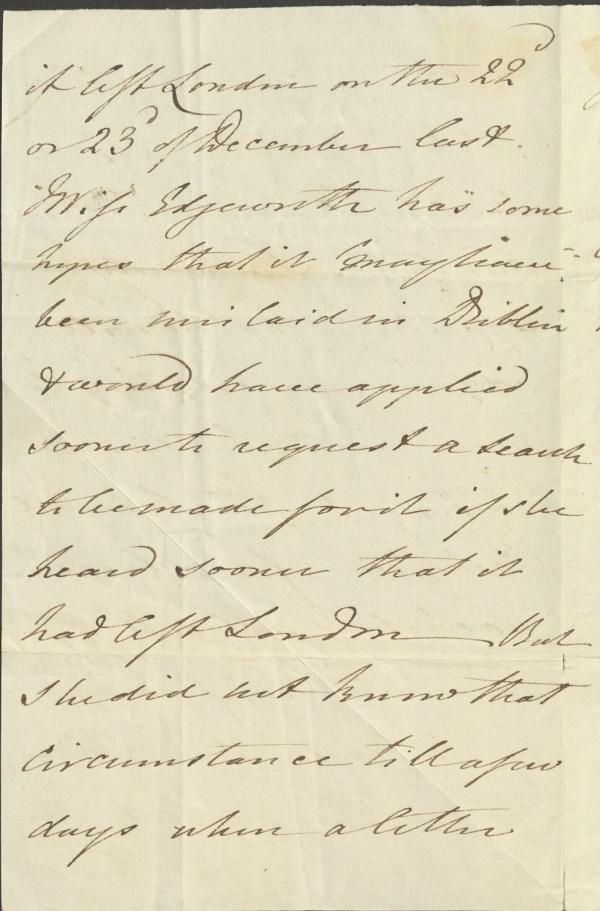 it left London on the 22d
or 23d of December last.
Miss Edgeworth has some
hopes that it may have
been mislaid in Dublin
& would have applied
sooner to request a search
to be made for it if she
heard sooner that it
had left London — But
she did not know that
circumstance till a few
days when a letter